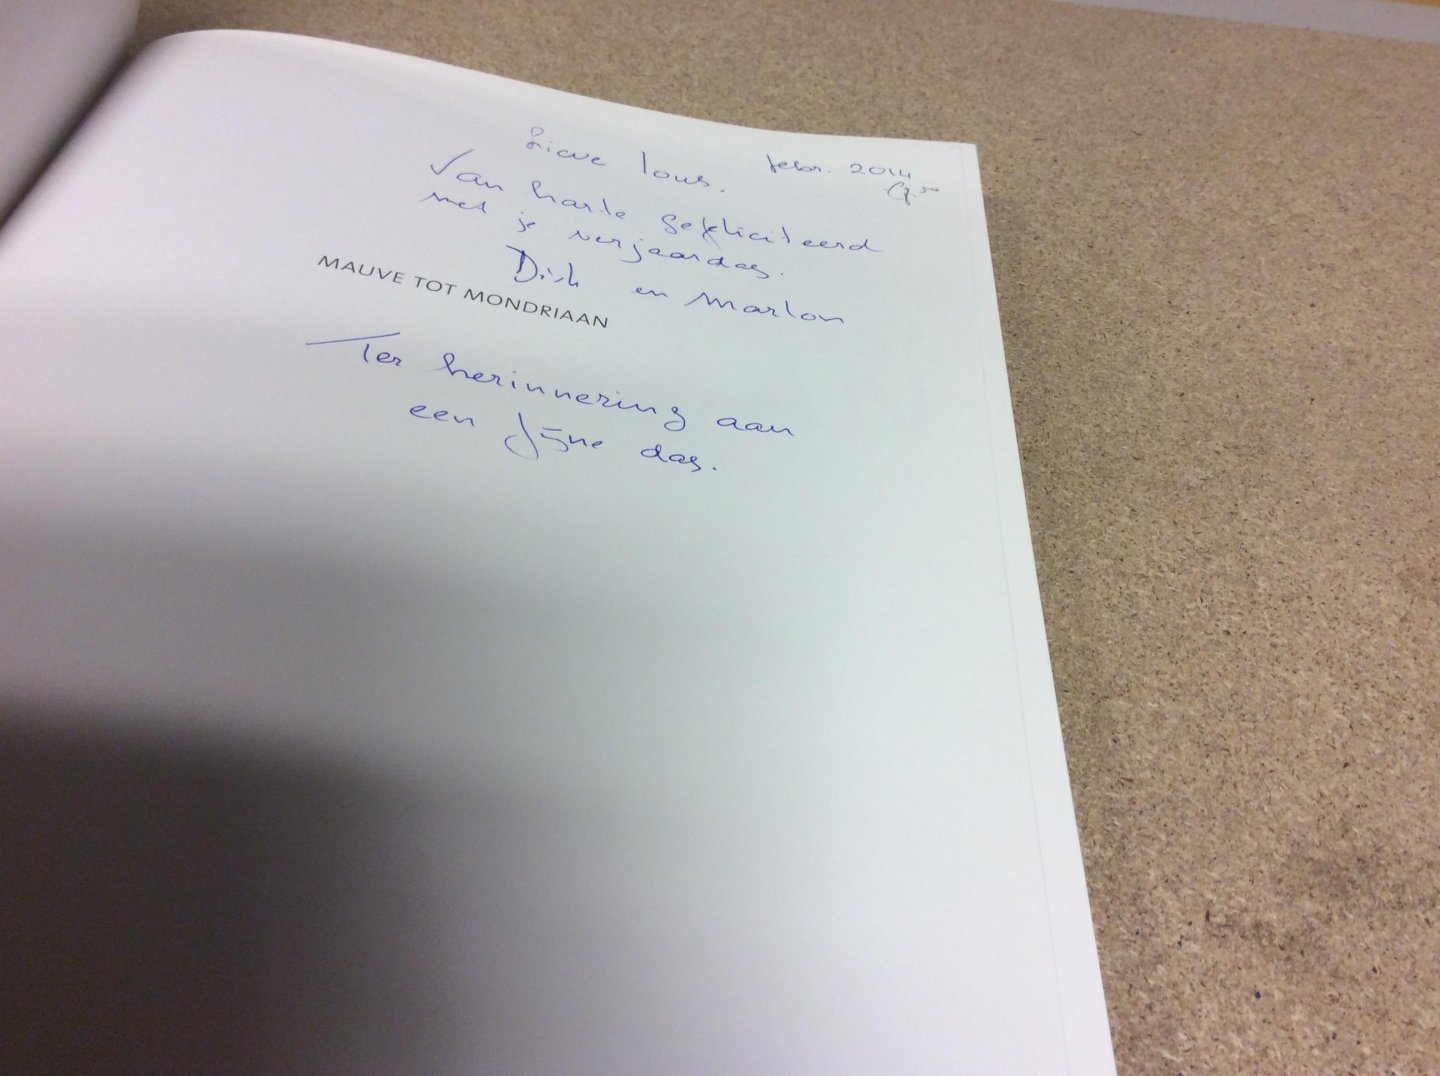 Lieve Lous, febr. 2014
Van harte gefeliciteerd
met je verjaardag.
Dick en Marlon
MAUVE TOT MONDRIAAN
Ter herinnering aan
een fijne dag.